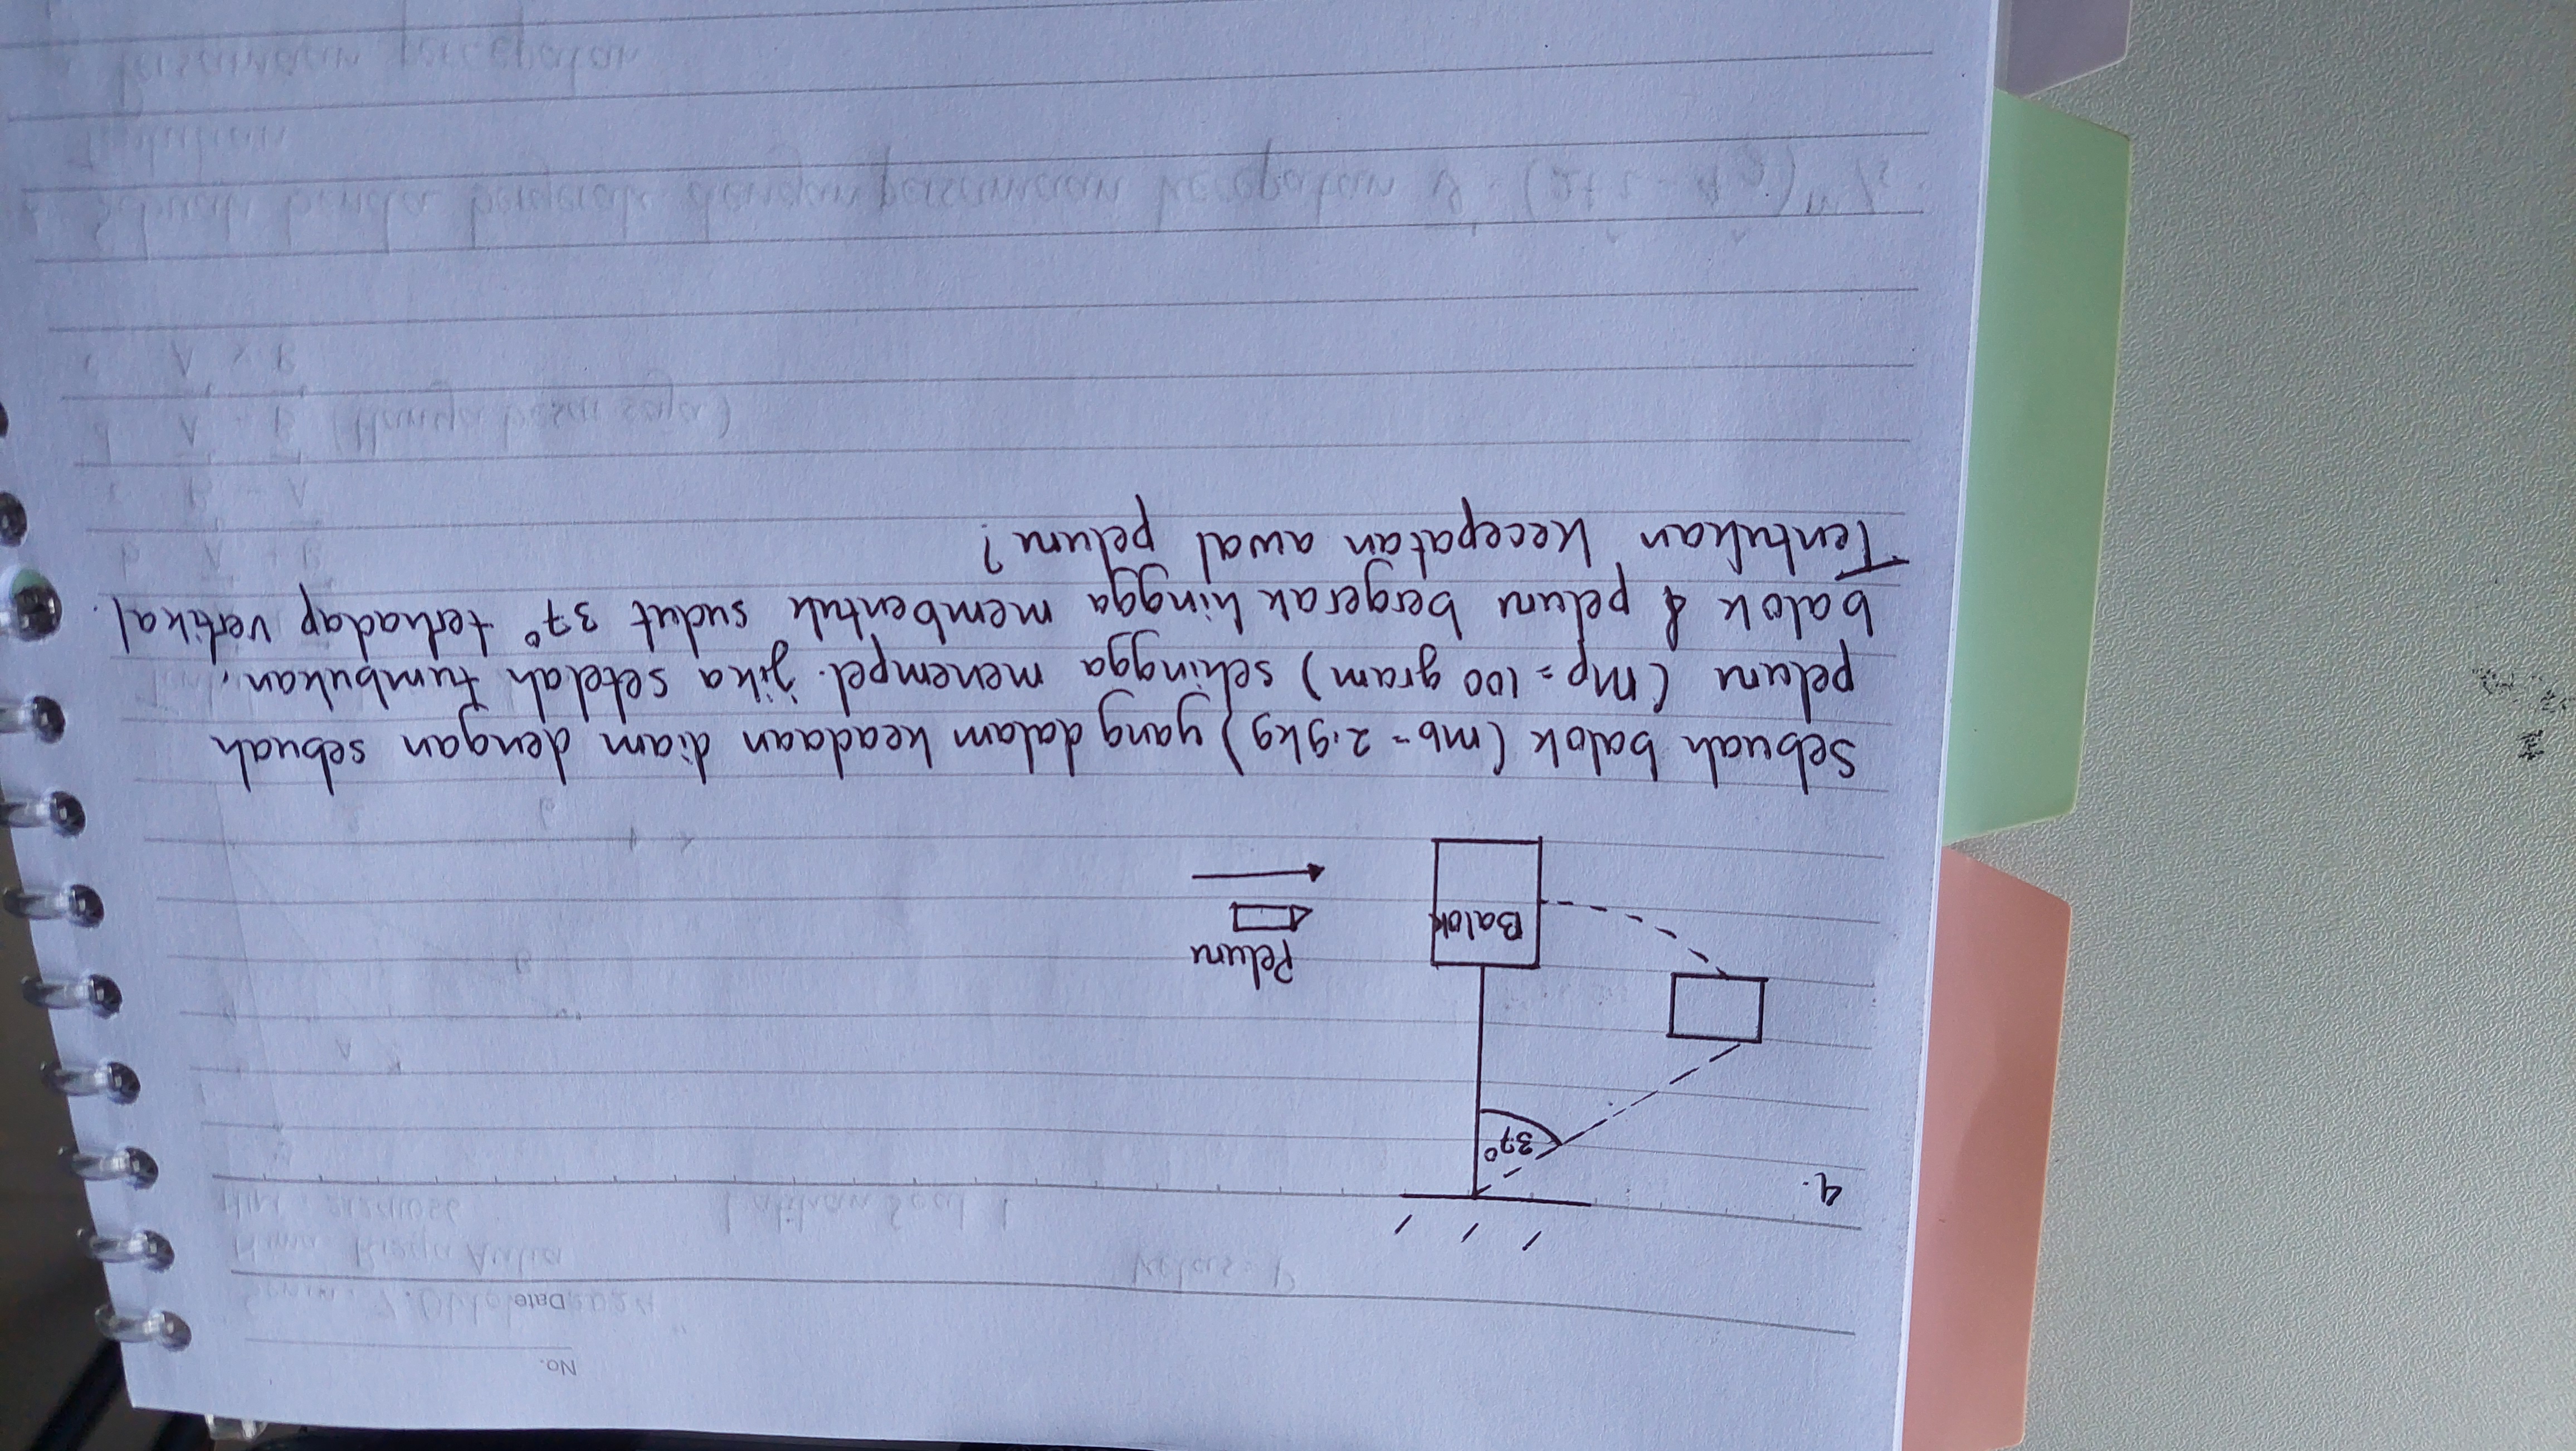 No.
Date
4.
37°
Balok
Peluru
Sebuah balok (mb = 2.9kg) yang dalam keadaan diam dengan sebuah
peluru (Mp = 100 gram) sehingga menempel. jika setelah tumbukan,
balok & peluru bergerak hingga membentuk sudut 37° terhadap vertikal.
Tentukan kecepatan awal peluru?